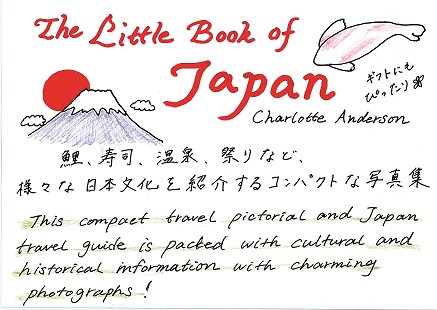 The Little Book of
Japan
ギフトにも
ぴったり
Charlotte Anderson
鯉、寿司、温泉、祭りなど、
様々な日本文化を紹介するコンパクトな写真集
This compact travel pictorial and Japan
travel guide is packed with cultural and
historical information with charming
photographs!